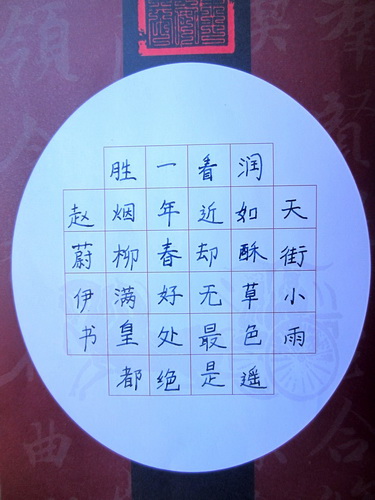 天街小雨
润如酥草色遥
看近却无最是
一年春好处绝
胜烟柳满皇都
赵蔚伊书